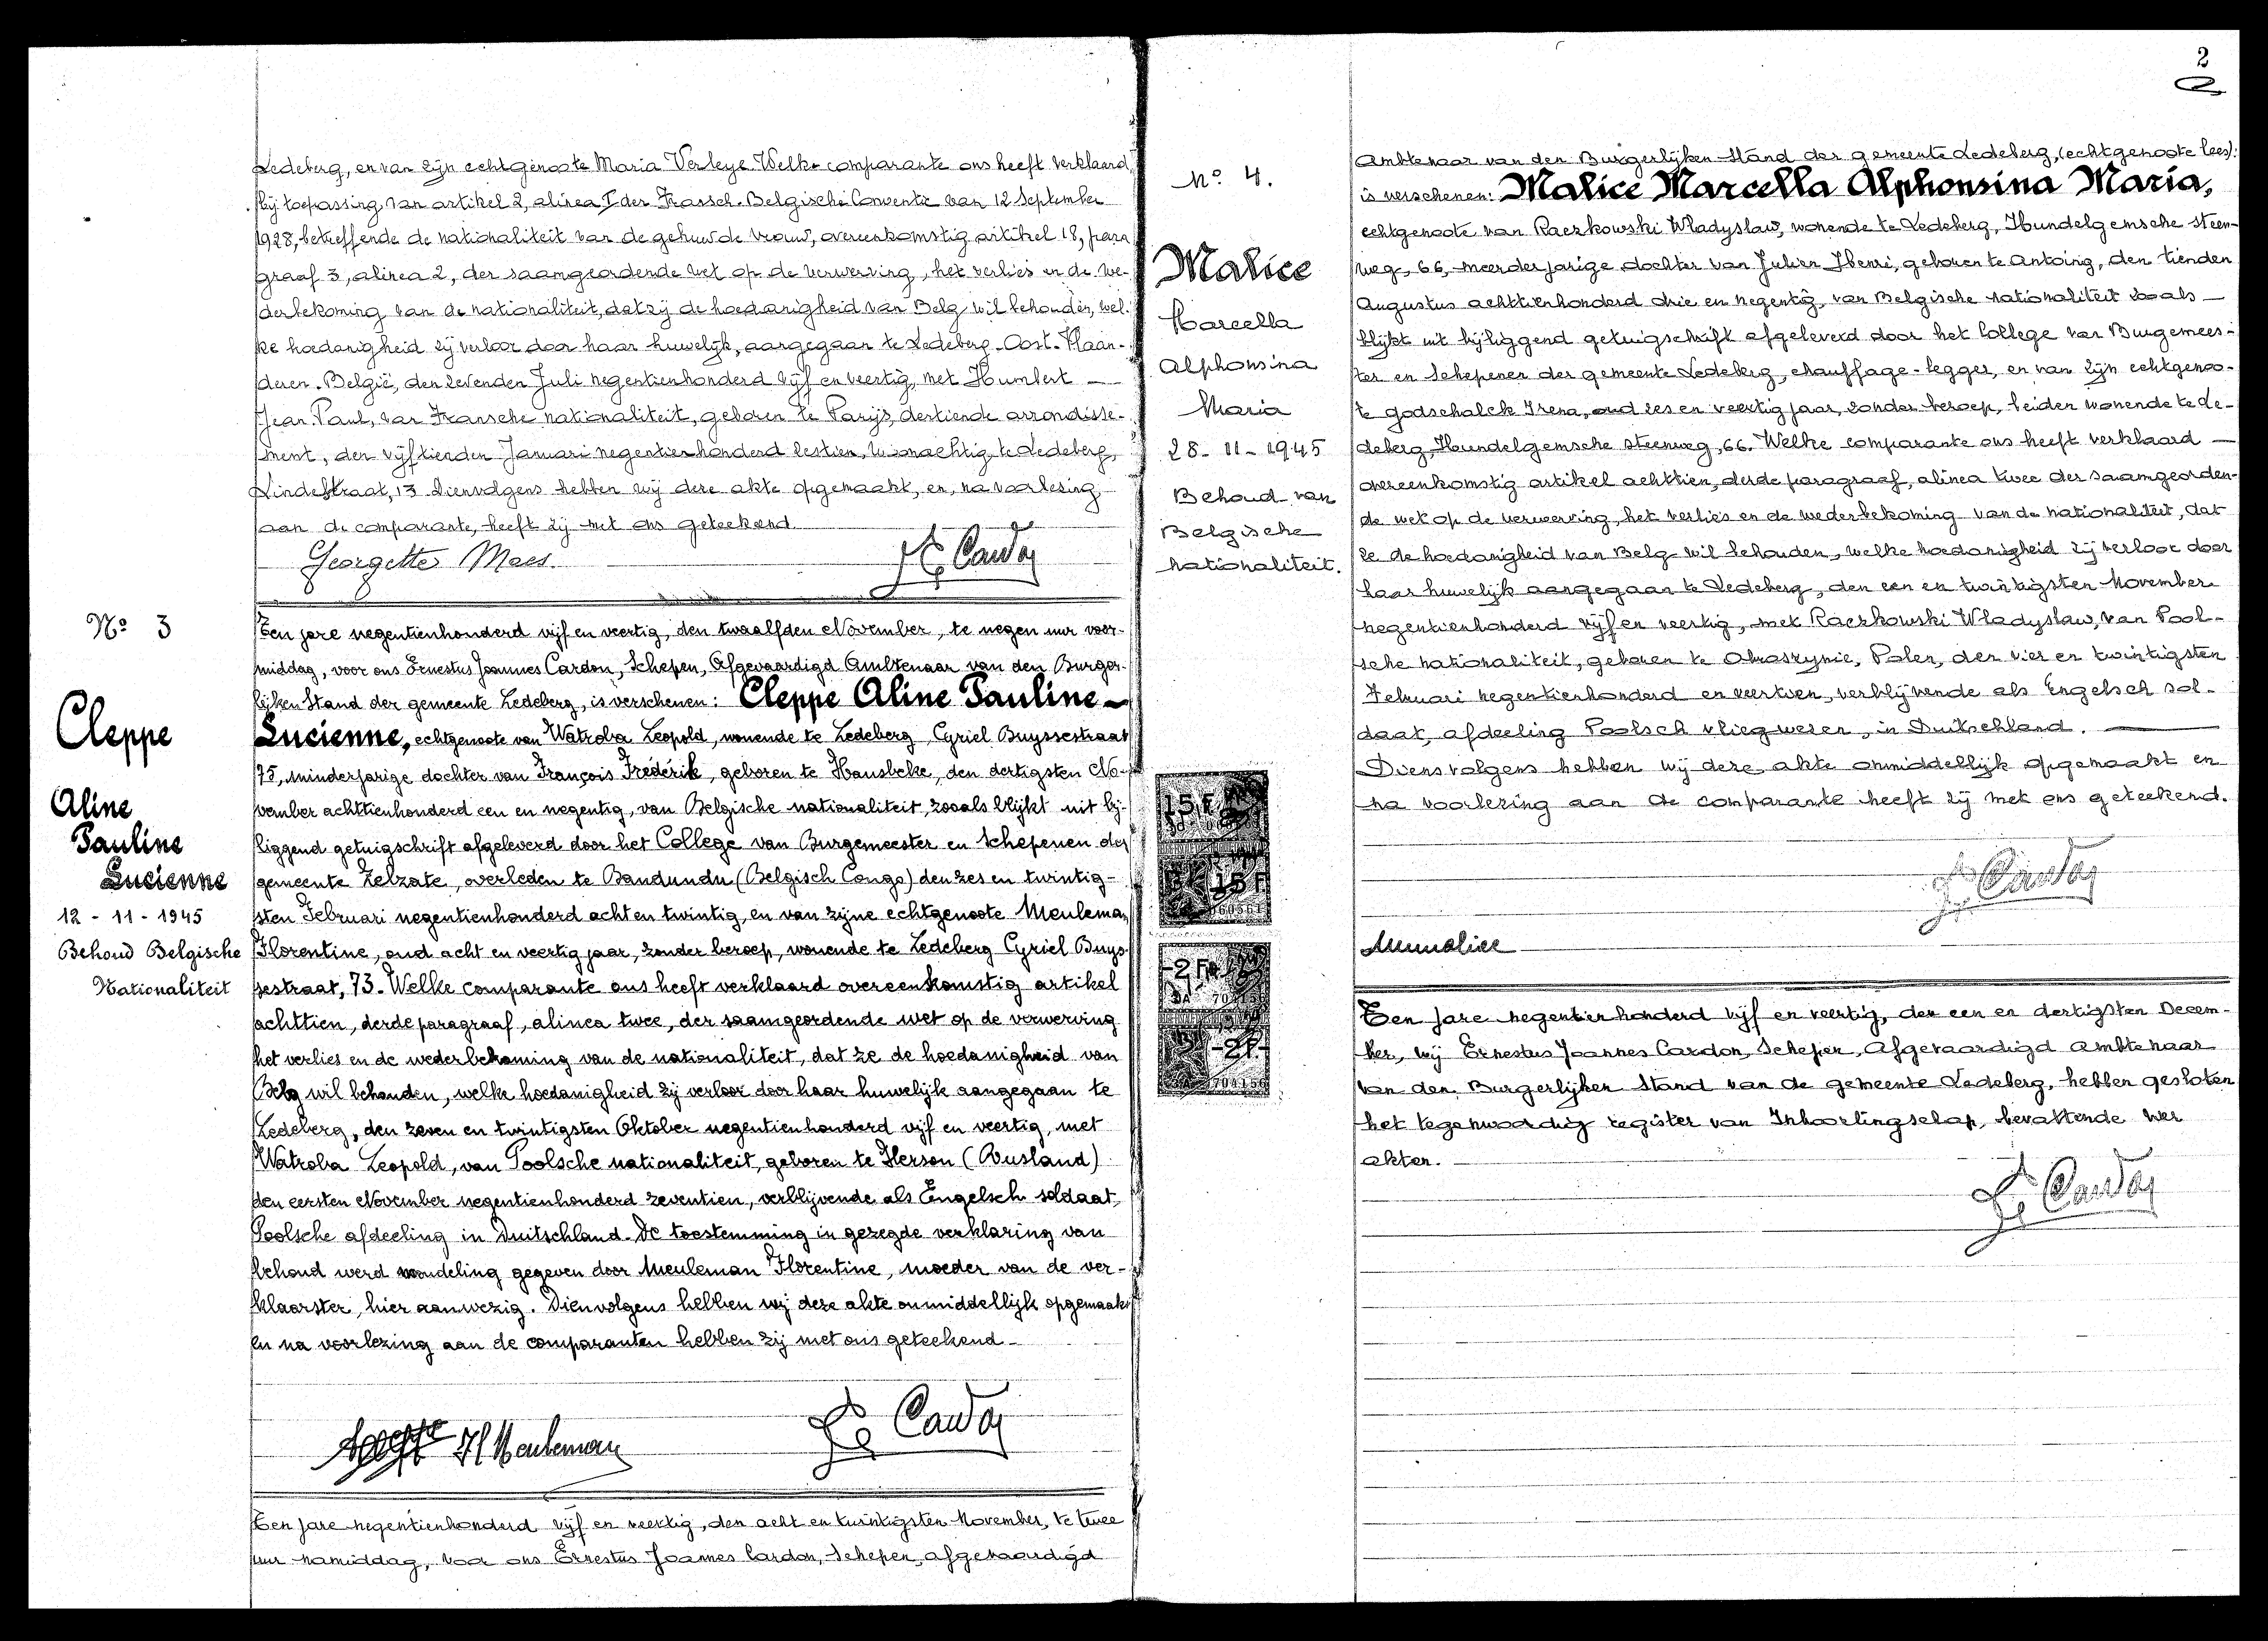 Ledeberg, en van zijn echtgenoote Maria Verleye. Welke comparante ons heeft verklaard,
bij toepassing van artikel 2, alinea I der Fransch-Belgische Conventie van 12 September
1928, betreffende de nationaliteit van de gehuwde vrouw, overeenkomstig artikel 18, para
graaf 3, alinea 2, der saamgeordende wet op de verwerving, het verlies en de we-
derbekoming van de nationaliteit, dat zij de hoedanigheid van Belg wil behouden, wel-
ke hoedanigheid zij verloor door haar huwelijk, aangegaan te Ledeberg-Oost-Vlaan-
deren-België, den zevenden Juli negentienhonderd vijf en veertig, met Humbert
Jean Paul, van Fransche nationaliteit, geboren te Parijs, dertiende arrondisse-
ment, den vijftienden Januari negentienhonderd zestien, woonachtig te Ledeberg,
Lindestraat, 13. Dienvolgens hebben wij deze akte opgemaakt, en, na voorlezing
aan de comparante, heeft zij met ons geteekend.
Georgette Maes.
Cardon
Nº 3
Cleppe
Aline
Pauline
Lucienne
12 - 11 - 1945
Behoud Belgische
Nationaliteit
Ten jare negentienhonderd vijf en veertig, den twaalfden November, te negen uur voor-
middag, voor ons Ernestus Joannes Cardon, Schepen, Afgevaardigd Ambtenaar van den Burger-
lijken Stand der gemeente Ledeberg, is verschenen: Cleppe Aline Pauline
Lucienne, echtgenoote van Watroba Leopold, wonende te Ledeberg, Cyriel Buyssestraat
75, minderjarige dochter van François Frederik, geboren te Hansbeke, den dertigsten No-
vember achttienhonderd een en negentig, van Belgische nationaliteit, zooals blijkt uit bij-
liggend getuigschrift afgeleverd door het College van Burgemeester en Schepenen der
gemeente Zelzate, overleden te Bandundu (Belgisch Congo) den zes en twintig-
sten Februari negentienhonderd acht en twintig, en van zijne echtgenoote Meuleman
Florentine, oud acht en veertig jaar, zonder beroep, wonende te Ledeberg Cyriel Buys-
sestraat, 73. Welke comparante ons heeft verklaard overeenkomstig artikel
achttien, derde paragraaf, alinea twee, der saamgeordende wet op de verwerving
het verlies en de wederbekoming van de nationaliteit, dat ze de hoedanigheid van
Belg wil behouden, welke hoedanigheid zij verloor door haar huwelijk aangegaan te
Ledeberg, den zeven en twintigsten Oktober negentienhonderd vijf en veertig, met
Watroba Leopold, van Poolsche nationaliteit, geboren te Herson (Rusland)
den eersten November negentienhonderd zeventien, verblijvende als Engelsch soldaat,
Poolsche afdeeling in Duitschland. De toestemming in gezegde verklaring van
behoud werd mondeling gegeven door Meuleman Florentine, moeder van de ver-
klaarster, hier aanwezig. Dienvolgens hebben wij deze akte onmiddellijk opgemaakt
en na voorlezing aan de comparanten hebben zij met ons geteekend.
Fl Meuleman
Cardon
Ten jare negentienhonderd vijf en veertig, den acht en twintigsten November, te twee
uur namiddag, voor ons Ernestus Joannes Cardon, Schepen, afgevaardigd
2
Nº 4.
Malice
Marcella
Alphonsina
Maria
28 - 11 - 1945
Behoud van
Belgische
nationaliteit.
15 F
15 F
-2 F-
704156
-2 F-
704156
Ambtenaar van den Burgerlijken Stand der gemeente Ledeberg, (echtgenoote lees):
is verschenen: Malice Marcella Alphonsina Maria,
echtgenoote van Raczkowski Wladyslaw, wonende te Ledeberg, Hundelgemsche steen-
weg, 66, meerderjarige dochter van Julien Henri, geboren te Antoing, den tienden
Augustus achttienhonderd drie en negentig, van Belgische nationaliteit zooals
blijkt uit bijliggend getuigschrift afgeleverd door het College van Burgemees-
ter en Schepenen der gemeente Ledeberg, chauffage-legger, en van zijn echtgenoo-
te Godschalck Irena, oud zes en veertig jaar, zonder beroep, beiden wonende te Le-
deberg, Hundelgemsche steenweg, 66. Welke comparante ons heeft verklaard
overeenkomstig artikel achttien, derde paragraaf, alinea twee der saamgeorden-
de wet op de verwerving, het verlies en de wederbekoming van de nationaliteit, dat
ze de hoedanigheid van Belg wil behouden, welke hoedanigheid zij verloor door
haar huwelijk aangegaan te Ledeberg, den een en twintigsten November
negentienhonderd vijf en veertig, met Raczkowski Wladyslaw, van Pool-
sche nationaliteit, geboren te Polen, den vier en twintigsten
Februari negentienhonderd en veertien, verblijvende als Engelsch sol-
daat, afdeeling Poolsch vliegwezen, in Duitschland.
Diensvolgens hebben wij deze akte onmiddellijk opgemaakt en
na voorlezing aan de comparante heeft zij met ons geteekend.
Cardon
Ten jare negentienhonderd vijf en veertig, den een en dertigsten Decem-
ber, wij Ernestus Joannes Cardon, Schepen, Afgevaardigd Ambtenaar
van den Burgerlijken Stand van de gemeente Ledeberg, hebben gesloten
het tegenwoordig register van Inboorlingschap, bevattende vier
akten.
Cardon